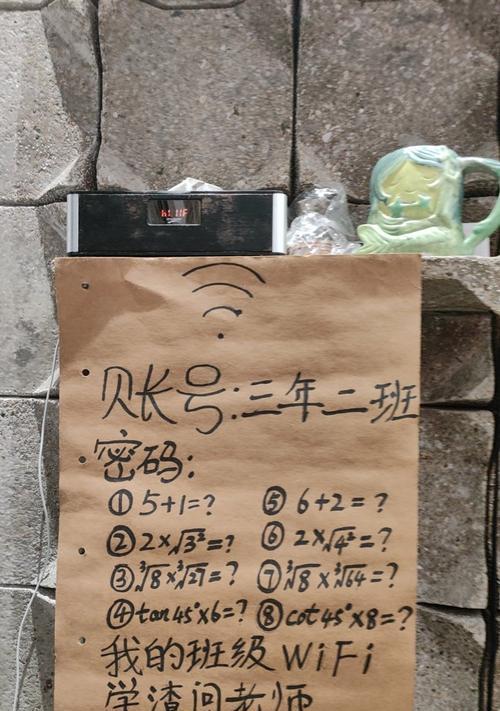 账号:三年二班
密码:
①5+1=? ⑤6+2=?
②2×√3²=? ⑥2×√4²=?
③³√8×³√27=? ⑦³√8×³√64=?
④tan45°×6=? ⑧cot45°×8=?
我的班级WiFi
学渣问老师